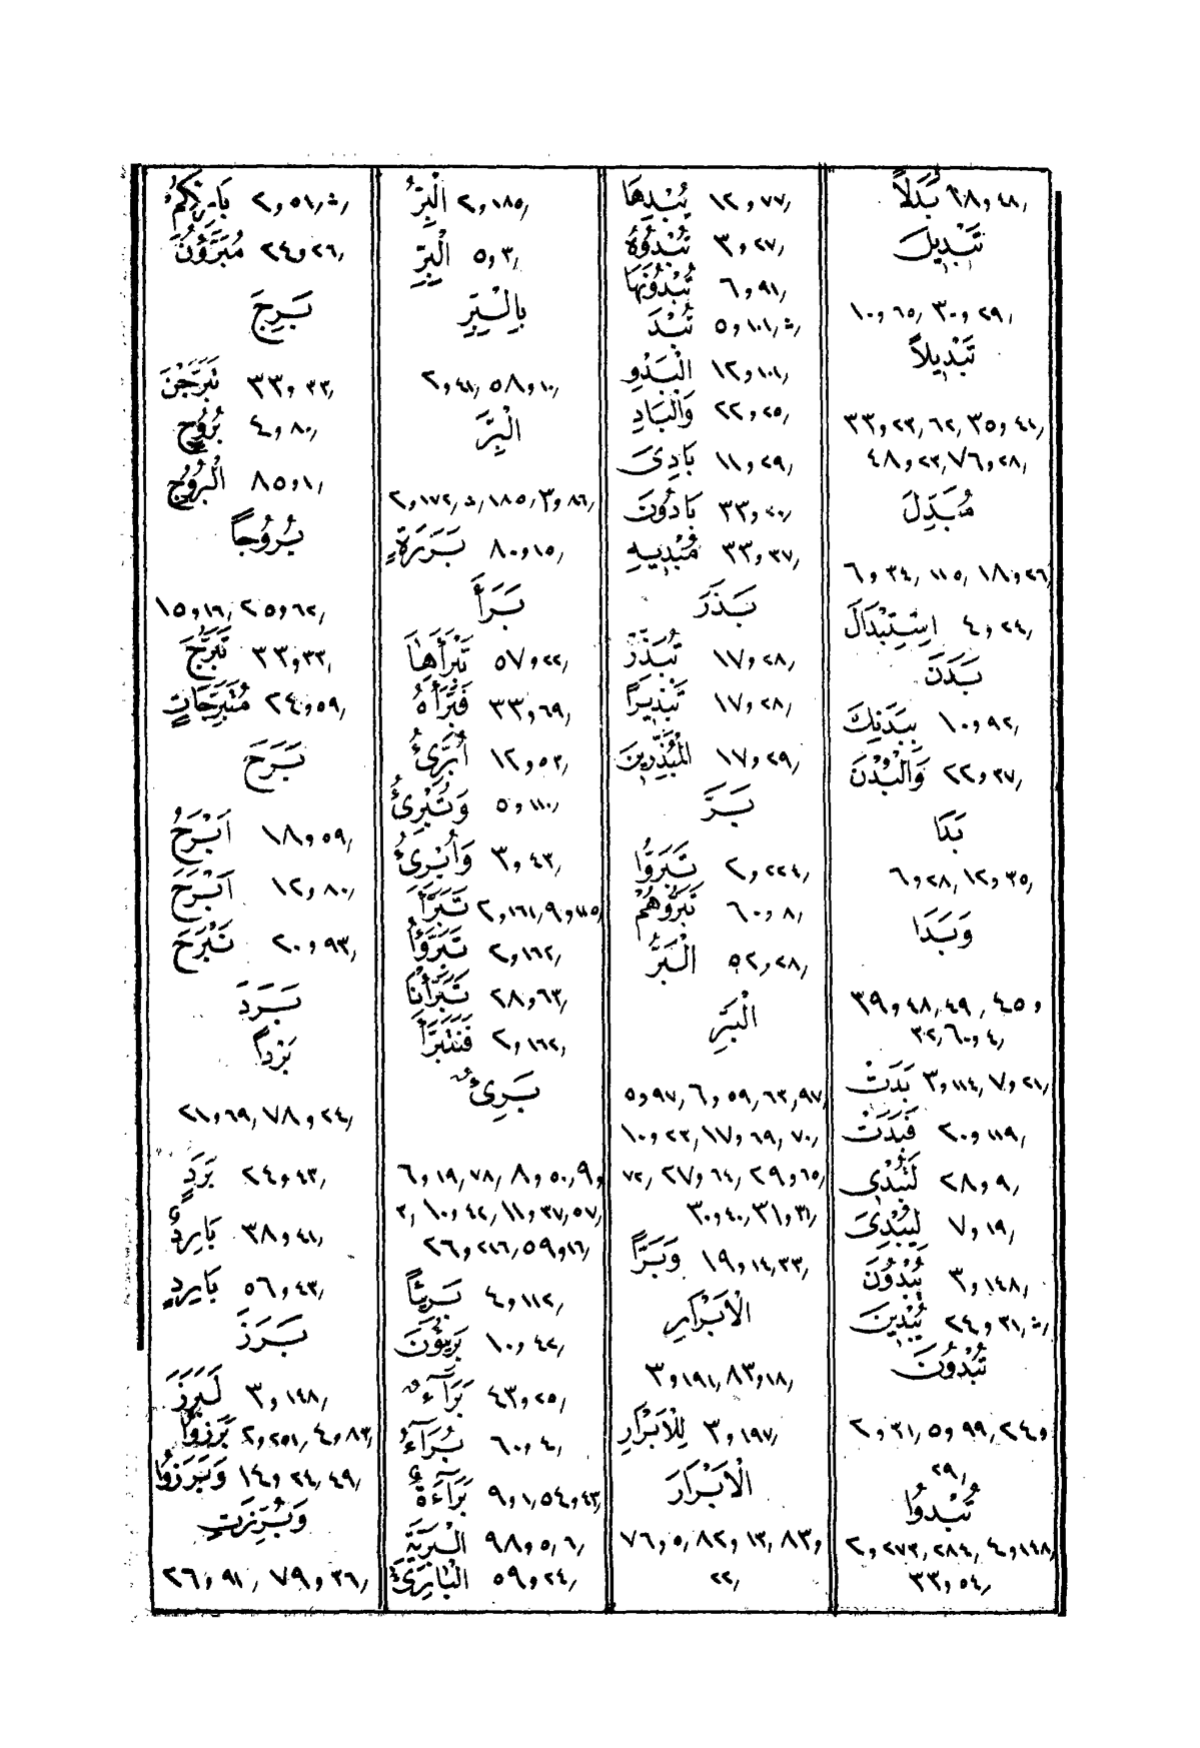 بَدَلاً ١٨و٤٨ر
تَبْدِيلَ
١٠و٦٥ر ٣٠و٢٩ر
تَبْدِيلاً
٣٣و٢٣ر ٦٢ر ٣٥و٤١ر
٤٨و٢٣ر ٧٦و٢٨ر
مُبَدِّلَ
٦و٣٤ر ١١٥ر ١٨و٢٦ر
اِسْتِبْدَالَ ٤و٢٤ر
بَدَنَ
بِبَدَنِكَ ١٠و٩٢ر
وَالْبُدْنَ ٢٢و٣٧ر
بَدَا
٦و٢٨ر ١٢و٣٥ر
وَبَدَا
٣٩و٤٨ر ٤٩ر ٤٥و
٣٢ر ٦٠و٤ر
بَدَتْ ٣و١١٤ر ٧و٢١ر
فَبَدَتْ ٢٠و١١٩ر
لَتُبْدِى ٢٨و٩ر
لِيُبْدِىَ ٧و١٩ر
يُبْدُونَ ٣و١٤٨ر
يُبْدِينَ ٢٤و٣١ر ث
تُبْدُونَ
٢و٣١ر ٥و٩٩ر ٢٤و
٢٩ر
تُبْدُوا
٢و٢٧٣ر ٢٨٤ر ٤و١٤٨ر
٣٣و٥٤ر
يُبْدِهَا ١٢و٧٧ر
تُبْدُوهُ ٣و٢٧ر
تُبْدُونَهَا ٦و٩١ر
تُبْدَ ٥و١٠١ر ث
الْبَدْوِ ١٢و١٠١ر
وَالْبَادِ ٢٢و٢٥ر
بَادِىَ ١١و٢٩ر
بَادُونَ ٣٣و٢٠ر
مُبْدِيهِ ٣٣و٣٧ر
بَذَرَ
تُبَذِّرْ ١٧و٢٨ر
تَبْذِيرًا ١٧و٢٨ر
الْمُبَذِّرِينَ ١٧و٢٩ر
بَرَّ
تَبَرُّوا ٢و٢٢٤ر
تَبَرُّوهُمْ ٦٠و٨ر
الْبَرُّ ٥٢و٢٨ر
الْبَرِّ
٥و٩٧ر ٦و٥٩ر ٦٣ر ٩٧ر
١٠و٢٣ر ١٧و٦٩ر ٧٠ر
٧٢ر ٢٧و٦٤ر ٢٩و٦٥ر
٣٠و٤٠ر ٣١و٣١ر
وَبَرًّا ١٩و١٤ر ٣٣ر
الْاَبْرَارِ
٣و١٩١ر ٨٣و١٨ر
لِلْاَبْرَارِ ٣و١٩٧ر
الْاَبْرَارَ
٧٦و٥ر ٨٢و١٣ر ٨٣و
٢٢ر
الْبِرُّ ٢و١٨٥ر
الْبِرِّ ٥و٣ر
بِالْبِرِّ
٢و٤١ر ٥٨و١٠ر
الْبِرَّ
٢و١٧٢ر ث ١٨٥ر ٣و٨٦ر
بَرَرَةٍ ٨٠و١٥ر
بَرَأَ
نَبْرَأَهَا ٥٧و٢٢ر
فَبَرَّأَهُ ٣٣و٦٩ر
أُبَرِّئُ ١٢و٥٣ر
وَتُبْرِئُ ٥و١١٠ر
وَأُبْرِئُ ٣و٤٣ر
تَبَرَّأَ ٢و١٦١ر ٩و١١٥ر
تَبَرَّؤُا ٢و١٦٢ر
تَبَرَّأْنَا ٢٨و٦٣ر
فَنَتَبَرَّأَ ٢و١٦٢ر
بَرِىءٌ
٦و١٩ر ٧٨ر ٨و٥٠ر ٩و
٣ر ١٠و٤٢ر ١١و٣٧ر ٥٧ر
٢٦و٢١٦ر ٥٩و١٦ر
بَرِيئًا ٤و١١٢ر
بَرِيئُونَ ١٠و٤٢ر
بَرَآءٌ ٤٣و٢٥ر
بُرَآءُ ٦٠و٤ر
بَرَآءَةٌ ٩و١ر ٥٤و٤٣ر
الْبَرِيَّةِ ٩٨و٥ر ٦ر
الْبَارِئُ ٥٩و٢٤ر
بَارِئِكُمْ ٢و٥١ر ث
مُبَرَّؤُنَ ٢٤و٢٦ر
بَرِجَ
تَبَرَّجْنَ ٣٣و٣٣ر
بُرُوجٍ ٤و٨٠ر
الْبُرُوجِ ٨٥و١ر
بُرُوجاً
١٥و١٦ر ٢٥و٦٢ر
تَبَرُّجَ ٣٣و٣٣ر
مُتَبَرِّجَاتٍ ٢٤و٥٩ر
بَرَحَ
اَبْرَحُ ١٨و٥٩ر
اَبْرَحَ ١٢و٨٠ر
نَبْرَحَ ٢٠و٩٣ر
بَرَدَ
بَرْداً
٢١و٦٩ر ٧٨و٢٤ر
بَرَدٍ ٢٤و٤٣ر
بَارِدٌ ٣٨و٤١ر
بَارِدٍ ٥٦و٤٣ر
بَرَزَ
لَبَرَزَ ٣و١٤٨ر
بَرَزُوا ٢و٢٥١ر ٤و٨٣ر
وَبَرَزُوا ١٤و٢٤ر ٤٩ر
وَبُرِّزَتِ
٢٦و٩١ر ٧٩و٣٦ر